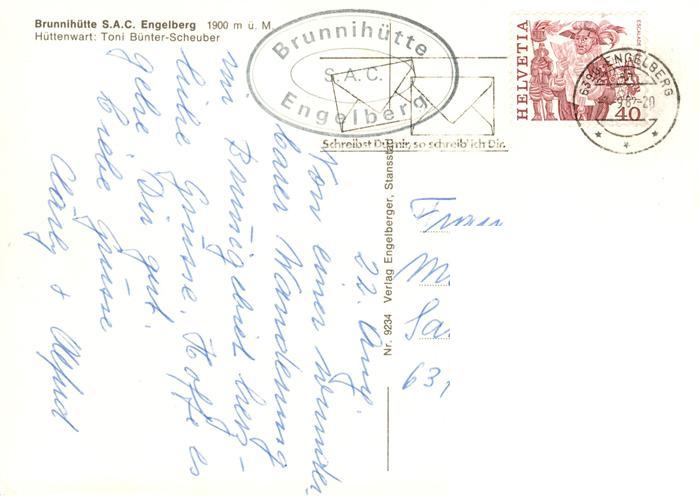 Brunnihütte S.A.C. Engelberg 1900 m ü. M.
Hüttenwart: Toni Bünter-Scheuber
Brunnihütte
S.A.C.
Engelberg
Schreibst Du mir, so schreib' ich Dir.
HELVETIA
ESCALADE
40
6390 ENGELBERG
Nr. 9234 Verlag Engelberger, Stansstad
22. Aug.
Von einer wunder-
baren Wanderung
im Brunnigebiet herz-
liche Grüsse. Hoffe es
gehe Dir gut.
Liebe Grüsse
+ Alfred
Frau
M
Sa
63